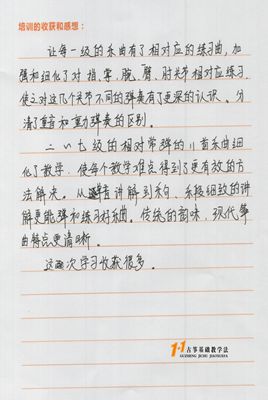 培训的收获和感想：
让每一级的乐曲有了相对应的练习曲，加
强和细化了对指、掌、腕、臂、肘关节相对应练习，
使之对这几个关节不同的弹奏有了更深的认识。分
清了重音和重力弹奏的区别。
二～七级的相对常弹的11首乐曲细
化了教学，使每个教学难点得到了更有效的方
法解决。从单音讲解到乐句、系统细致的讲
解更能弹和练习好乐曲。传统的韵味，现代筝
曲特点更清晰。
这次学习收获很多。
1+1
古筝基础教学法
GUZHENG JICHU JIAOXUEFA